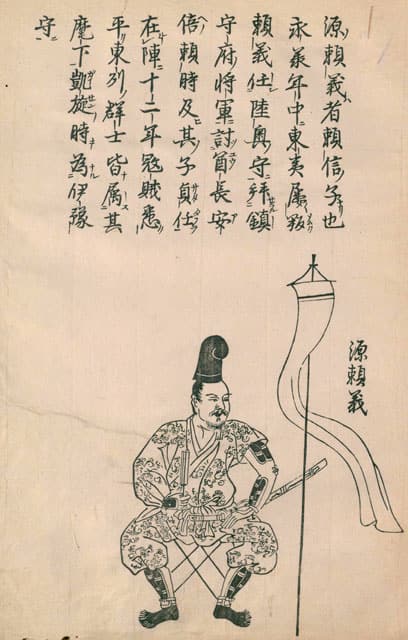 源頼義者頼信子也
永承年中東夷屢叛
頼義任陸奥守拝鎮
守府将軍討酋長安
倍頼時及其子貞任
在陣十二年冦賊悉
平東列群士皆属其
麾下凱旋時為伊豫
守
源頼義